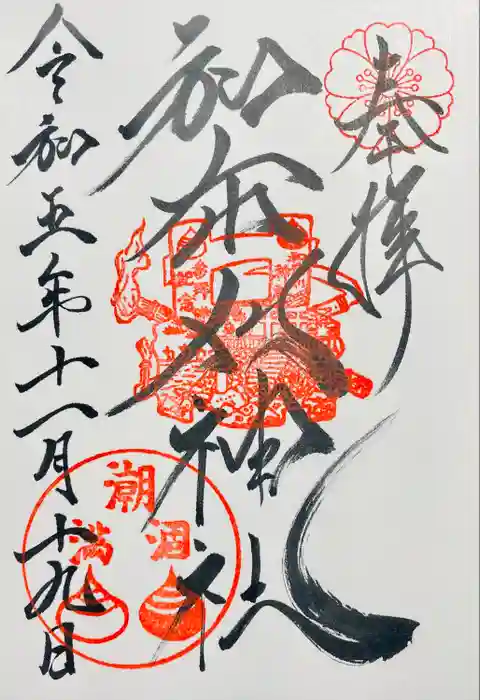 奉拝
和布刈神社
令和五年十一月十九日
潮
涸
満